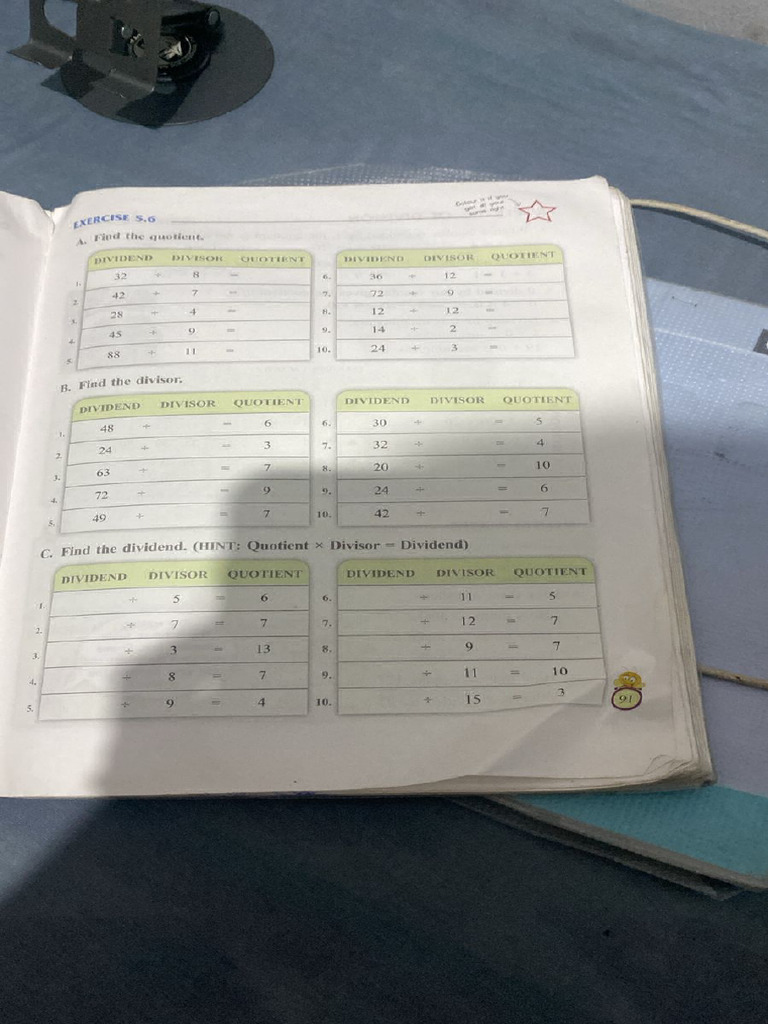 EXERCISE 5.6
Colour it if you
get all your
sums right
A. Find the quotient.
DIVIDEND DIVISOR QUOTIENT
1. 32 ÷ 8 =
2. 42 ÷ 7 =
3. 28 ÷ 4 =
4. 45 ÷ 9 =
5. 88 ÷ 11 =
DIVIDEND DIVISOR QUOTIENT
6. 36 ÷ 12 =
7. 72 ÷ 9 =
8. 12 ÷ 12 =
9. 14 ÷ 2 =
10. 24 ÷ 3 =
B. Find the divisor.
DIVIDEND DIVISOR QUOTIENT
1. 48 ÷ = 6
2. 24 ÷ = 3
3. 63 ÷ = 7
4. 72 ÷ = 9
5. 49 ÷ = 7
DIVIDEND DIVISOR QUOTIENT
6. 30 ÷ = 5
7. 32 ÷ = 4
8. 20 ÷ = 10
9. 24 ÷ = 6
10. 42 ÷ = 7
C. Find the dividend. (HINT: Quotient × Divisor = Dividend)
DIVIDEND DIVISOR QUOTIENT
1. ÷ 5 = 6
2. ÷ 7 = 7
3. ÷ 3 = 13
4. ÷ 8 = 7
5. ÷ 9 = 4
DIVIDEND DIVISOR QUOTIENT
6. ÷ 11 = 5
7. ÷ 12 = 7
8. ÷ 9 = 7
9. ÷ 11 = 10
10. ÷ 15 = 3
91